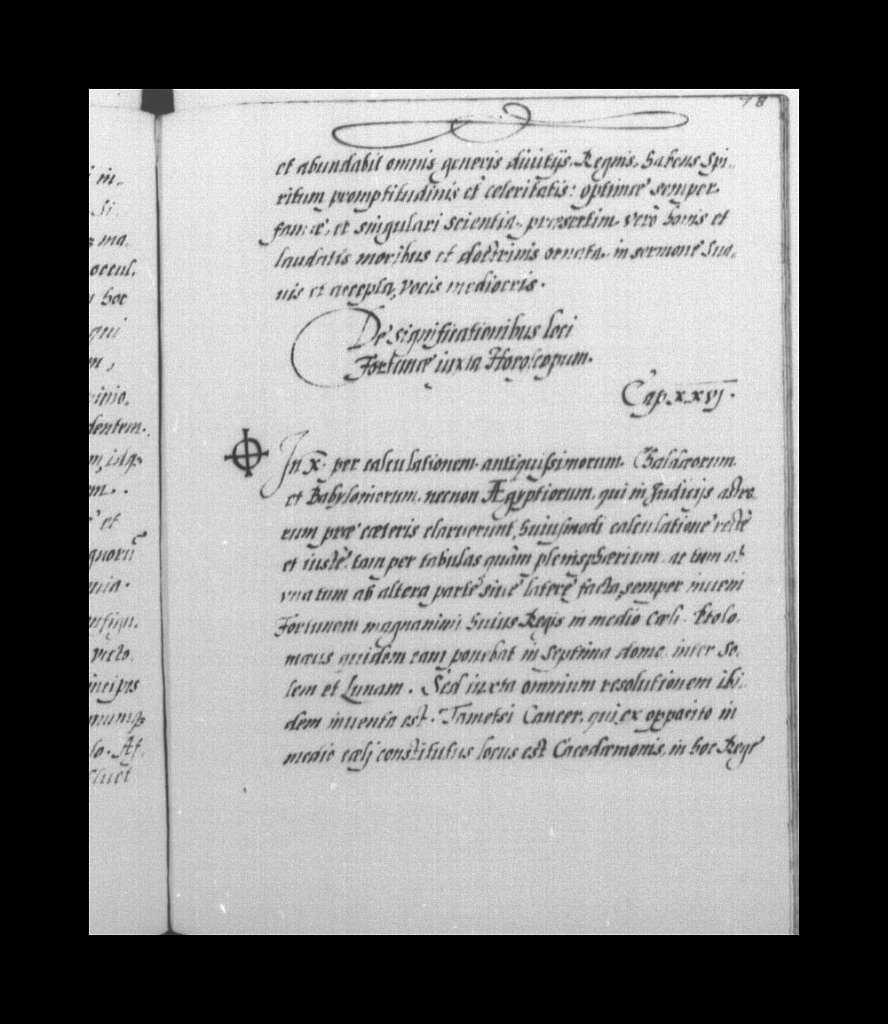 78
et abundabit omnis generis diuitijs. Regnis. habens Spi..
ritum promptitudinis et celeritatis: optimæ semper.
famæ, et singulari scientia, præsertim vero bonis et
laudatis moribus et doctrinis ornata. in sermone sua.
uis et accepta, vocis mediocris.
De significationibus loci
Fortunæ iuxta Horoscopum.
Cap. xxvj.
In x. per calculationem antiquissimorum Chaldæorum
et Babyloniorum. necnon Ægyptiorum, qui in Judicijs astro.
rum præ cæteris claruerunt, huiusmodi calculatione recte
et iuste, tam per tabulas quàm plenisphærium, ac tum ab
vna tum ab altera parte siue latere facta, semper inueni
Fortunam magnanimi huius Regis in medio Cæli. Ptolo.
mæus quidem eam ponebat in Septima domo inter So.
lem et Lunam. Sed iuxta omnium resolutionem ibi.
dem inuenta est. Tametsi Cancer, qui ex opposito in
medio cælj constitutus locus est Cacodæmonis, in hoc Rege
in..
Si.
ma.
occul.
hoc
qui
m,
dentem.
et
quorū
mia.
victo.
incipis
lo. Af.